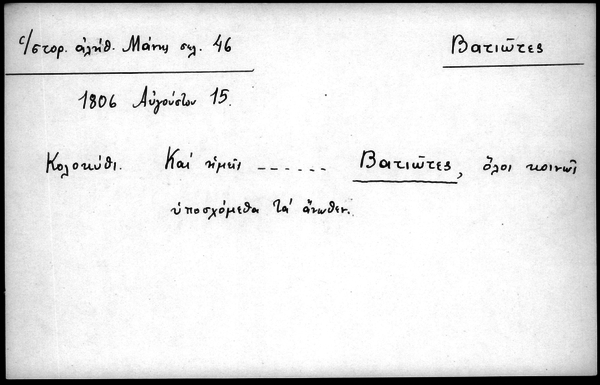 Ἱστορ. ἀλήθ. Μάνης σελ. 46
Βατιῶτες
1806 Αὐγούστου 15.
Κολοκύθι. Καί ἡμεῖς ------ Βατιῶτες, ὅλοι κοινῶς
ὑποσχόμεθα τά ἄνωθεν.